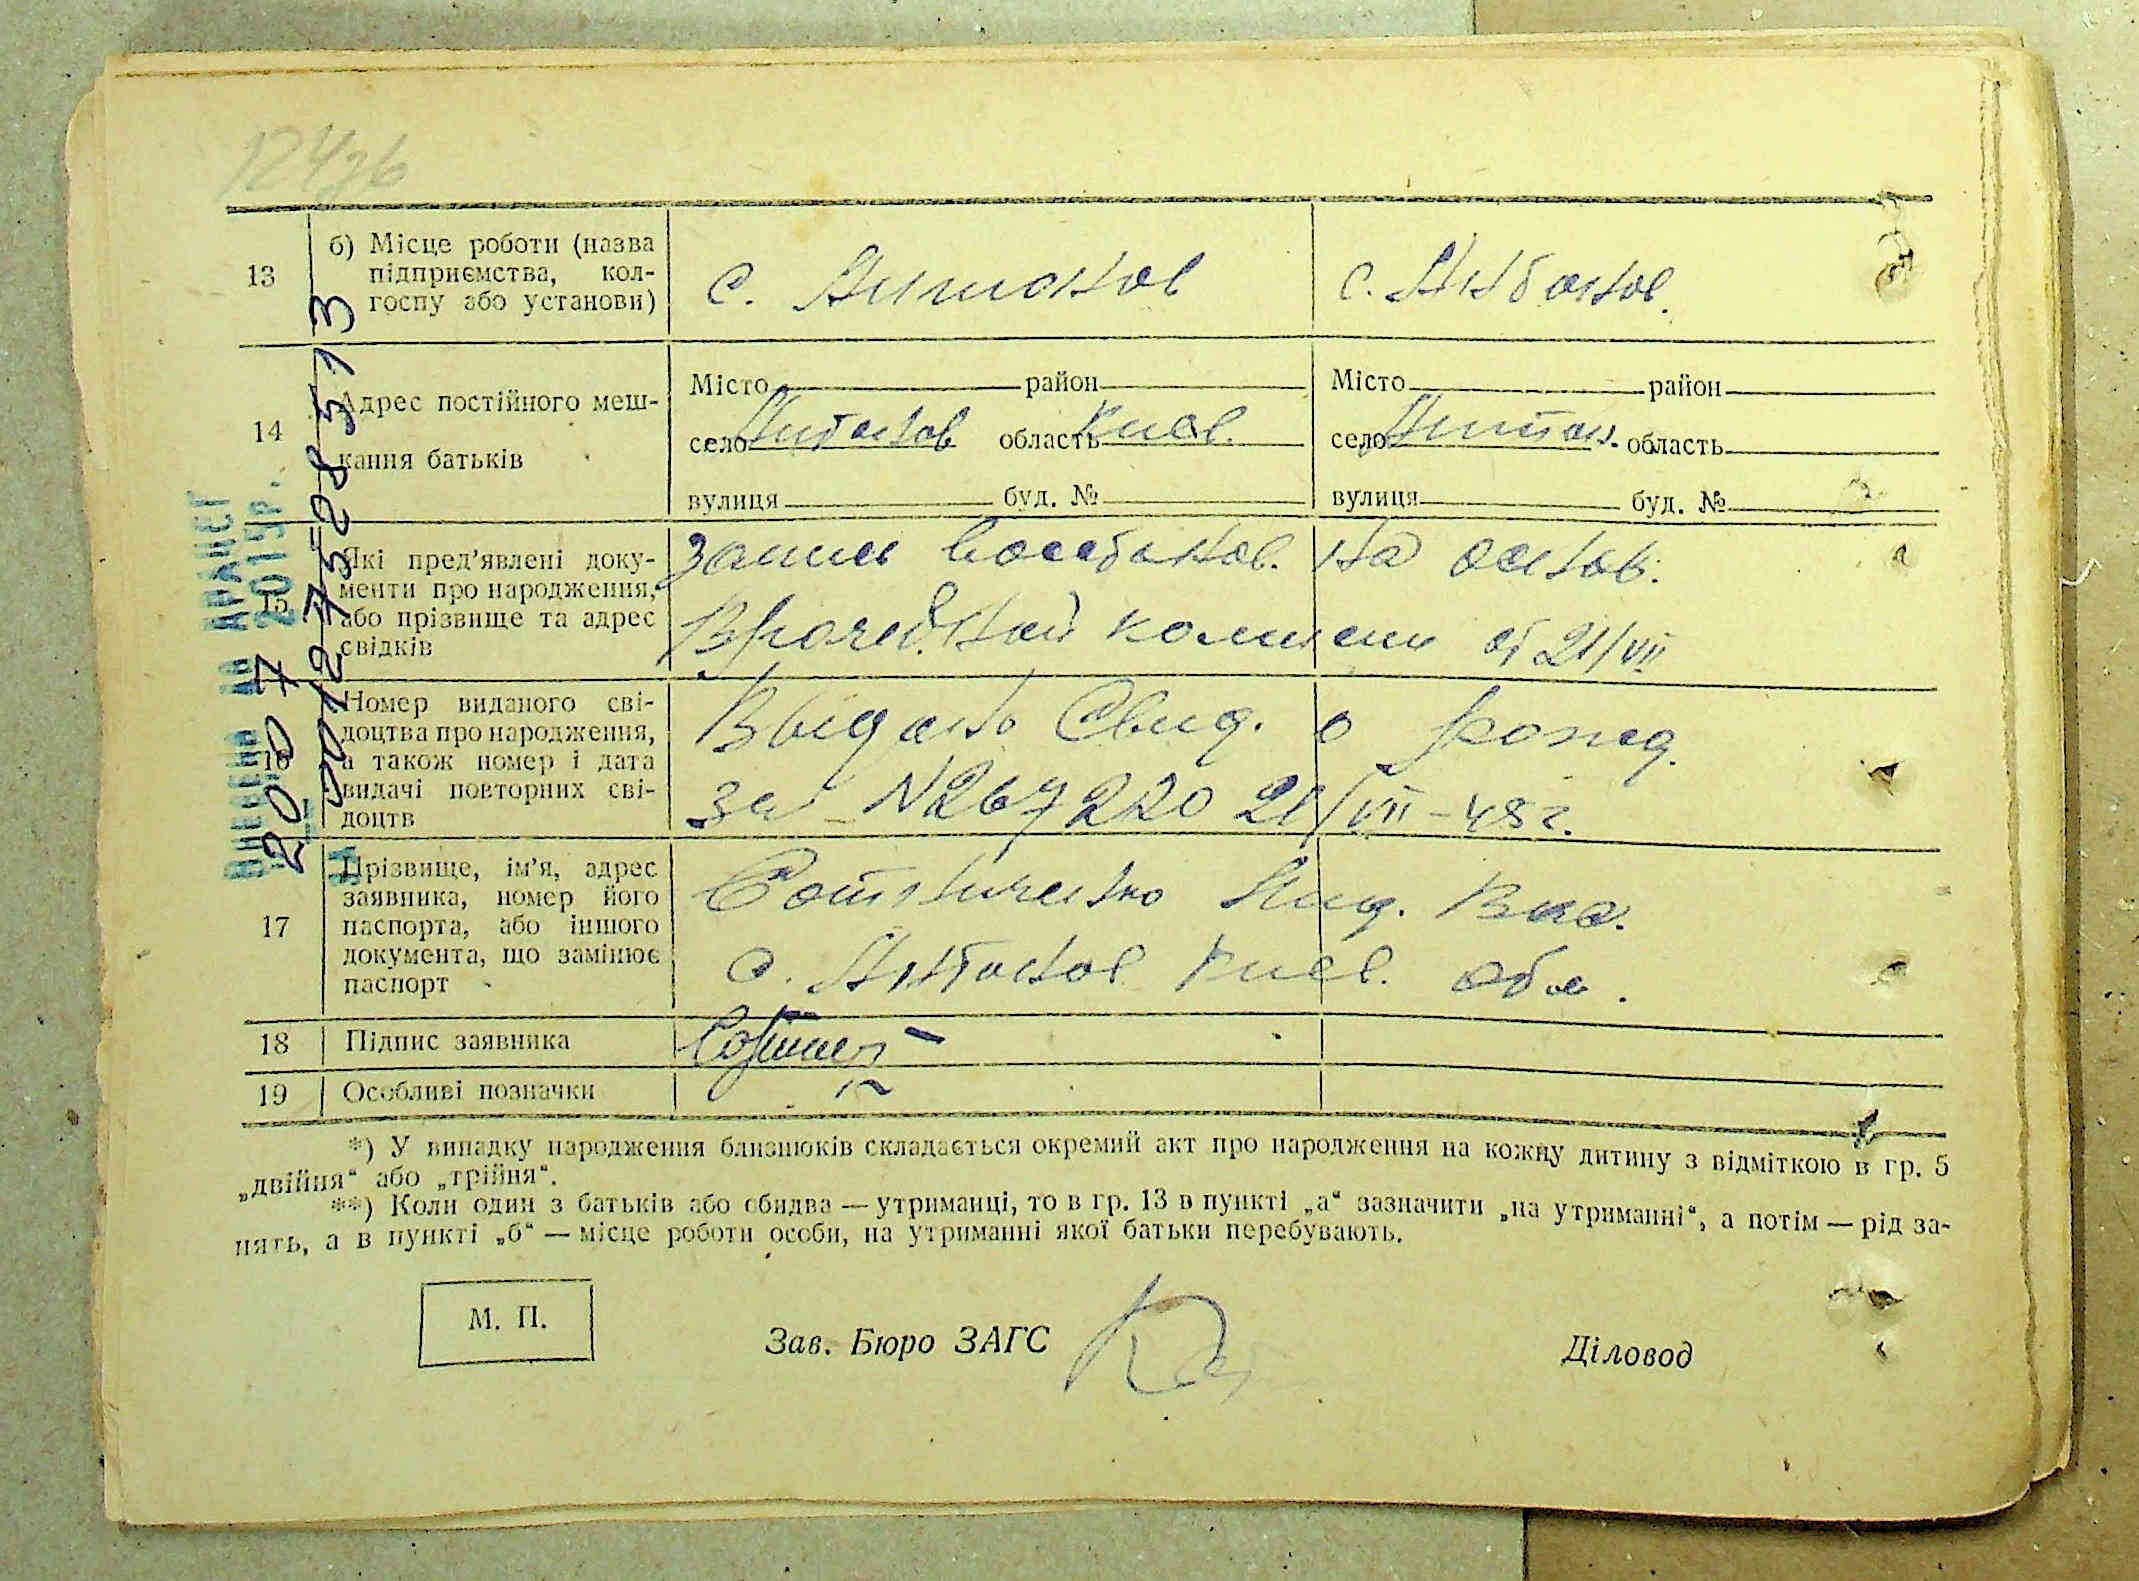 124зв
13
б) Місце роботи (назва
підприємства, кол-
госпу або установи)
с. Антонов
с. Антонов.
14
Адрес постійного меш-
кання батьків
Місто район
село Антонов область Киев.
вулиця буд. №
Місто район
село Антон. область
вулиця буд. №
15
Які пред'явлені доку-
менти про народження,
або прізвище та адрес
свідків
Запись восстанов. на основ.
Врачебной комиссии от 21/VII
16
Номер виданого сві-
доцтва про народження,
а також номер і дата
видачі повторних сві-
доцтв
Выдано Свид. о рожд.
за N 267220 21/VII-48г.
17
Прізвище, ім'я, адрес
заявника, номер його
паспорта, або іншого
документа, що замінює
паспорт
с. Антонов Киев. обл.
18
Підпис заявника
19
Особливі позначки
*) У випадку народження близнюків складається окремий акт про народження на кожну дитину з відміткою в гр. 5
„двійня“ або „трійня“.
**) Коли один з батьків або обидва — утриманці, то в гр. 13 в пункті „а“ зазначити „на утриманні“, а потім — рід за-
нять, а в пункті „б“ — місце роботи особи, на утриманні якої батьки перебувають.
М. П.
Зав. Бюро ЗАГС
Діловод